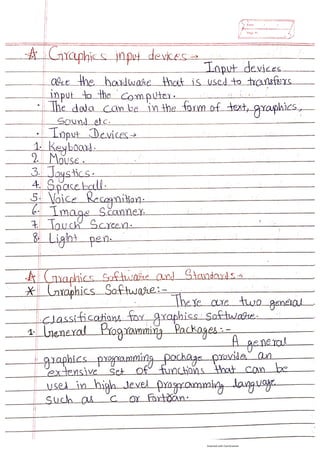 A Graphics input devices →
Input devices
are the hardware that is used to transfers
input to the computer.
• The data can be in the form of text, graphics,
sound etc.
• Input Devices →
1. Keyboard.
2. Mouse.
3. Joystics.
4. Spaceball.
5. Voice Recognition.
6. Image Scanner.
7. Touch Screen.
8. Light pen.
A Graphics Software and Standards →
* Graphics Software:-
There are two general
classifications for graphics Software.
1. General Programming Packages:-
A general
graphics programming package provides an
extensive set of functions that can be
used in high level programming language
such as C or Fortran.